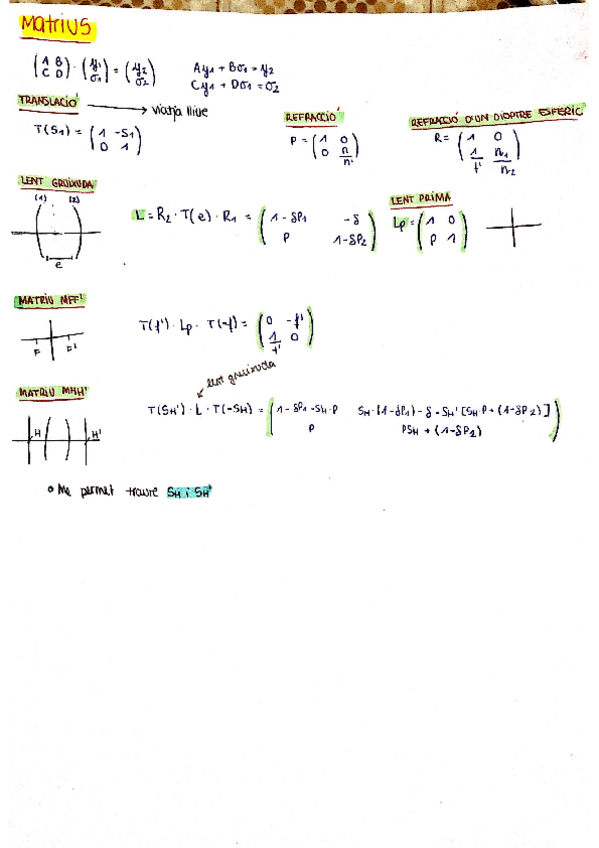 Matrius
(A B; C D) · (y1; σ1) = (y2; σ2)    Ay1 + Bσ1 = y2
Cy1 + Dσ1 = σ2
TRANSLACIÓ → viatja lliure
T(S1) = (1 -S1; 0 1)
REFRACCIÓ
P = (1 0; 0 n/n')
REFRACCIÓ D'UN DIOPTRE ESFÈRIC
R = (1 0; 1/f' n1/n2)
LENT GRUIXUDA
(1) (2)
e
L = R2 · T(e) · R1 = (1-δP1 -δ; P 1-δP2)
LENT PRIMA
Lp = (1 0; P 1)
MATRIU MFF'
F F'
T(f') · Lp · T(-f) = (0 -f'; 1/f' 0)
MATRIU MHH'
H H'
lent gruixuda
T(SH') · L · T(-SH) = (1-δP1-SH·P SH·(1-δP1)-δ-SH'[SH·P+(1-δP2)]; P PSH+(1-δP2))
o Me permet traure SH i SH'